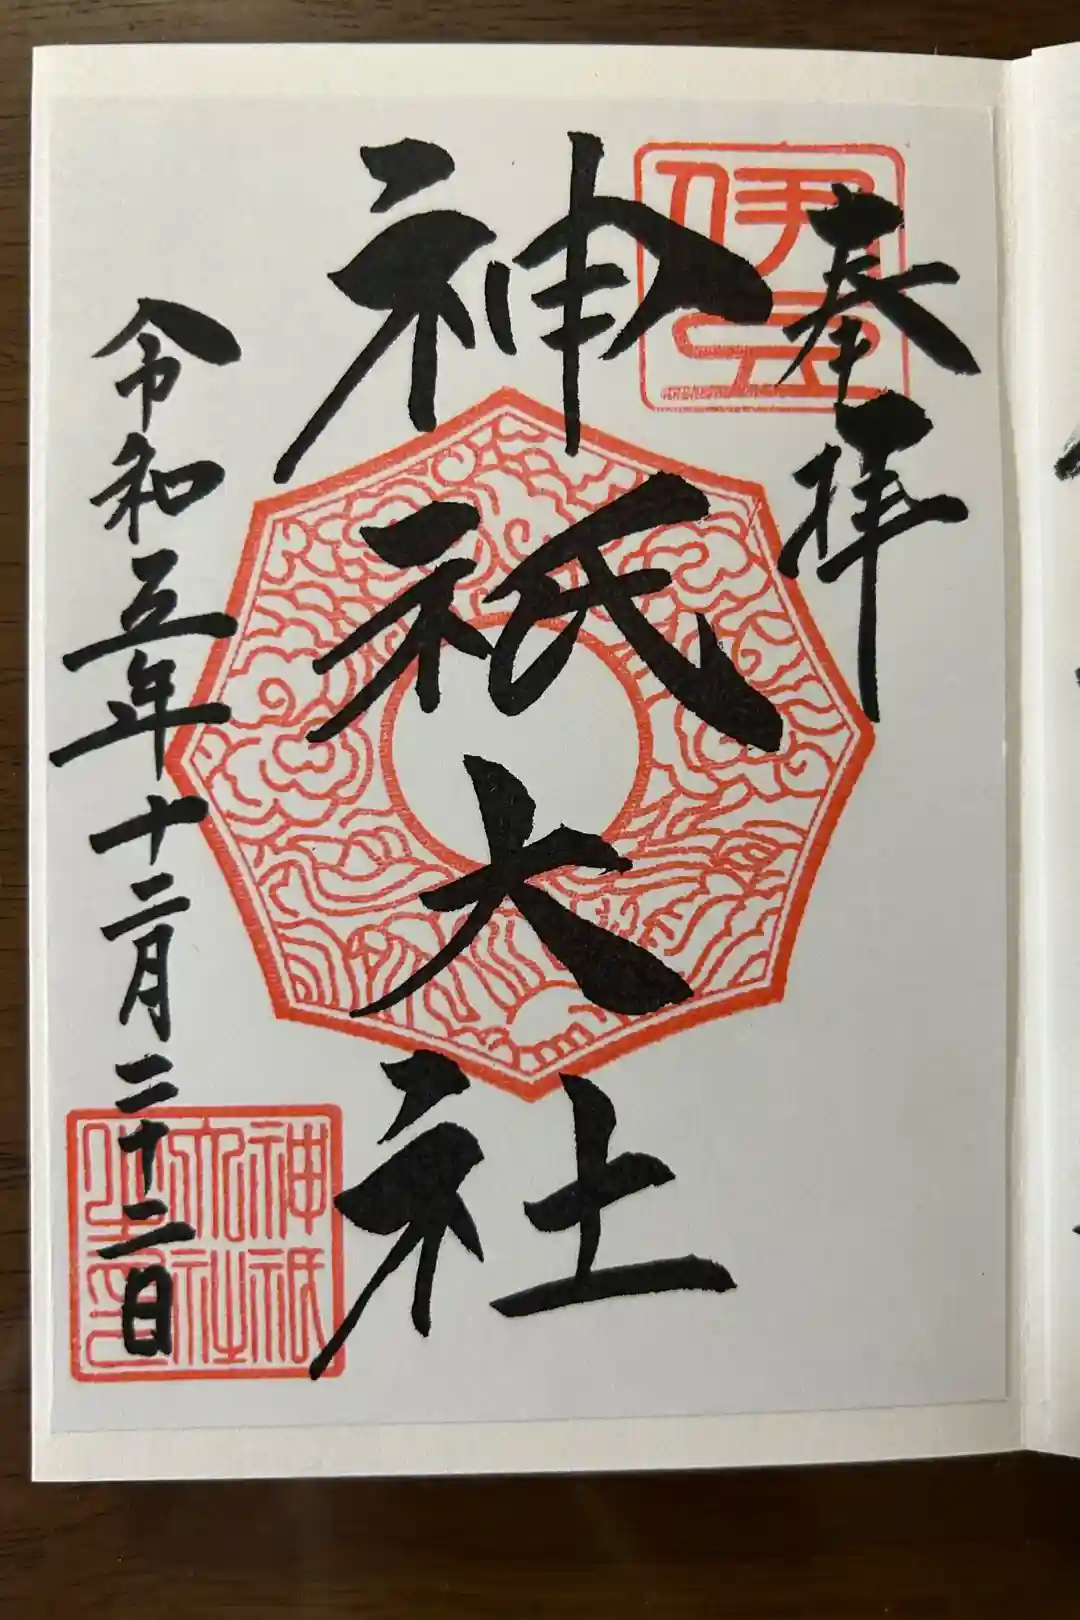 奉拝
伊豆
神祇大社
令和五年十二月二十二日
神祇
大社
之印